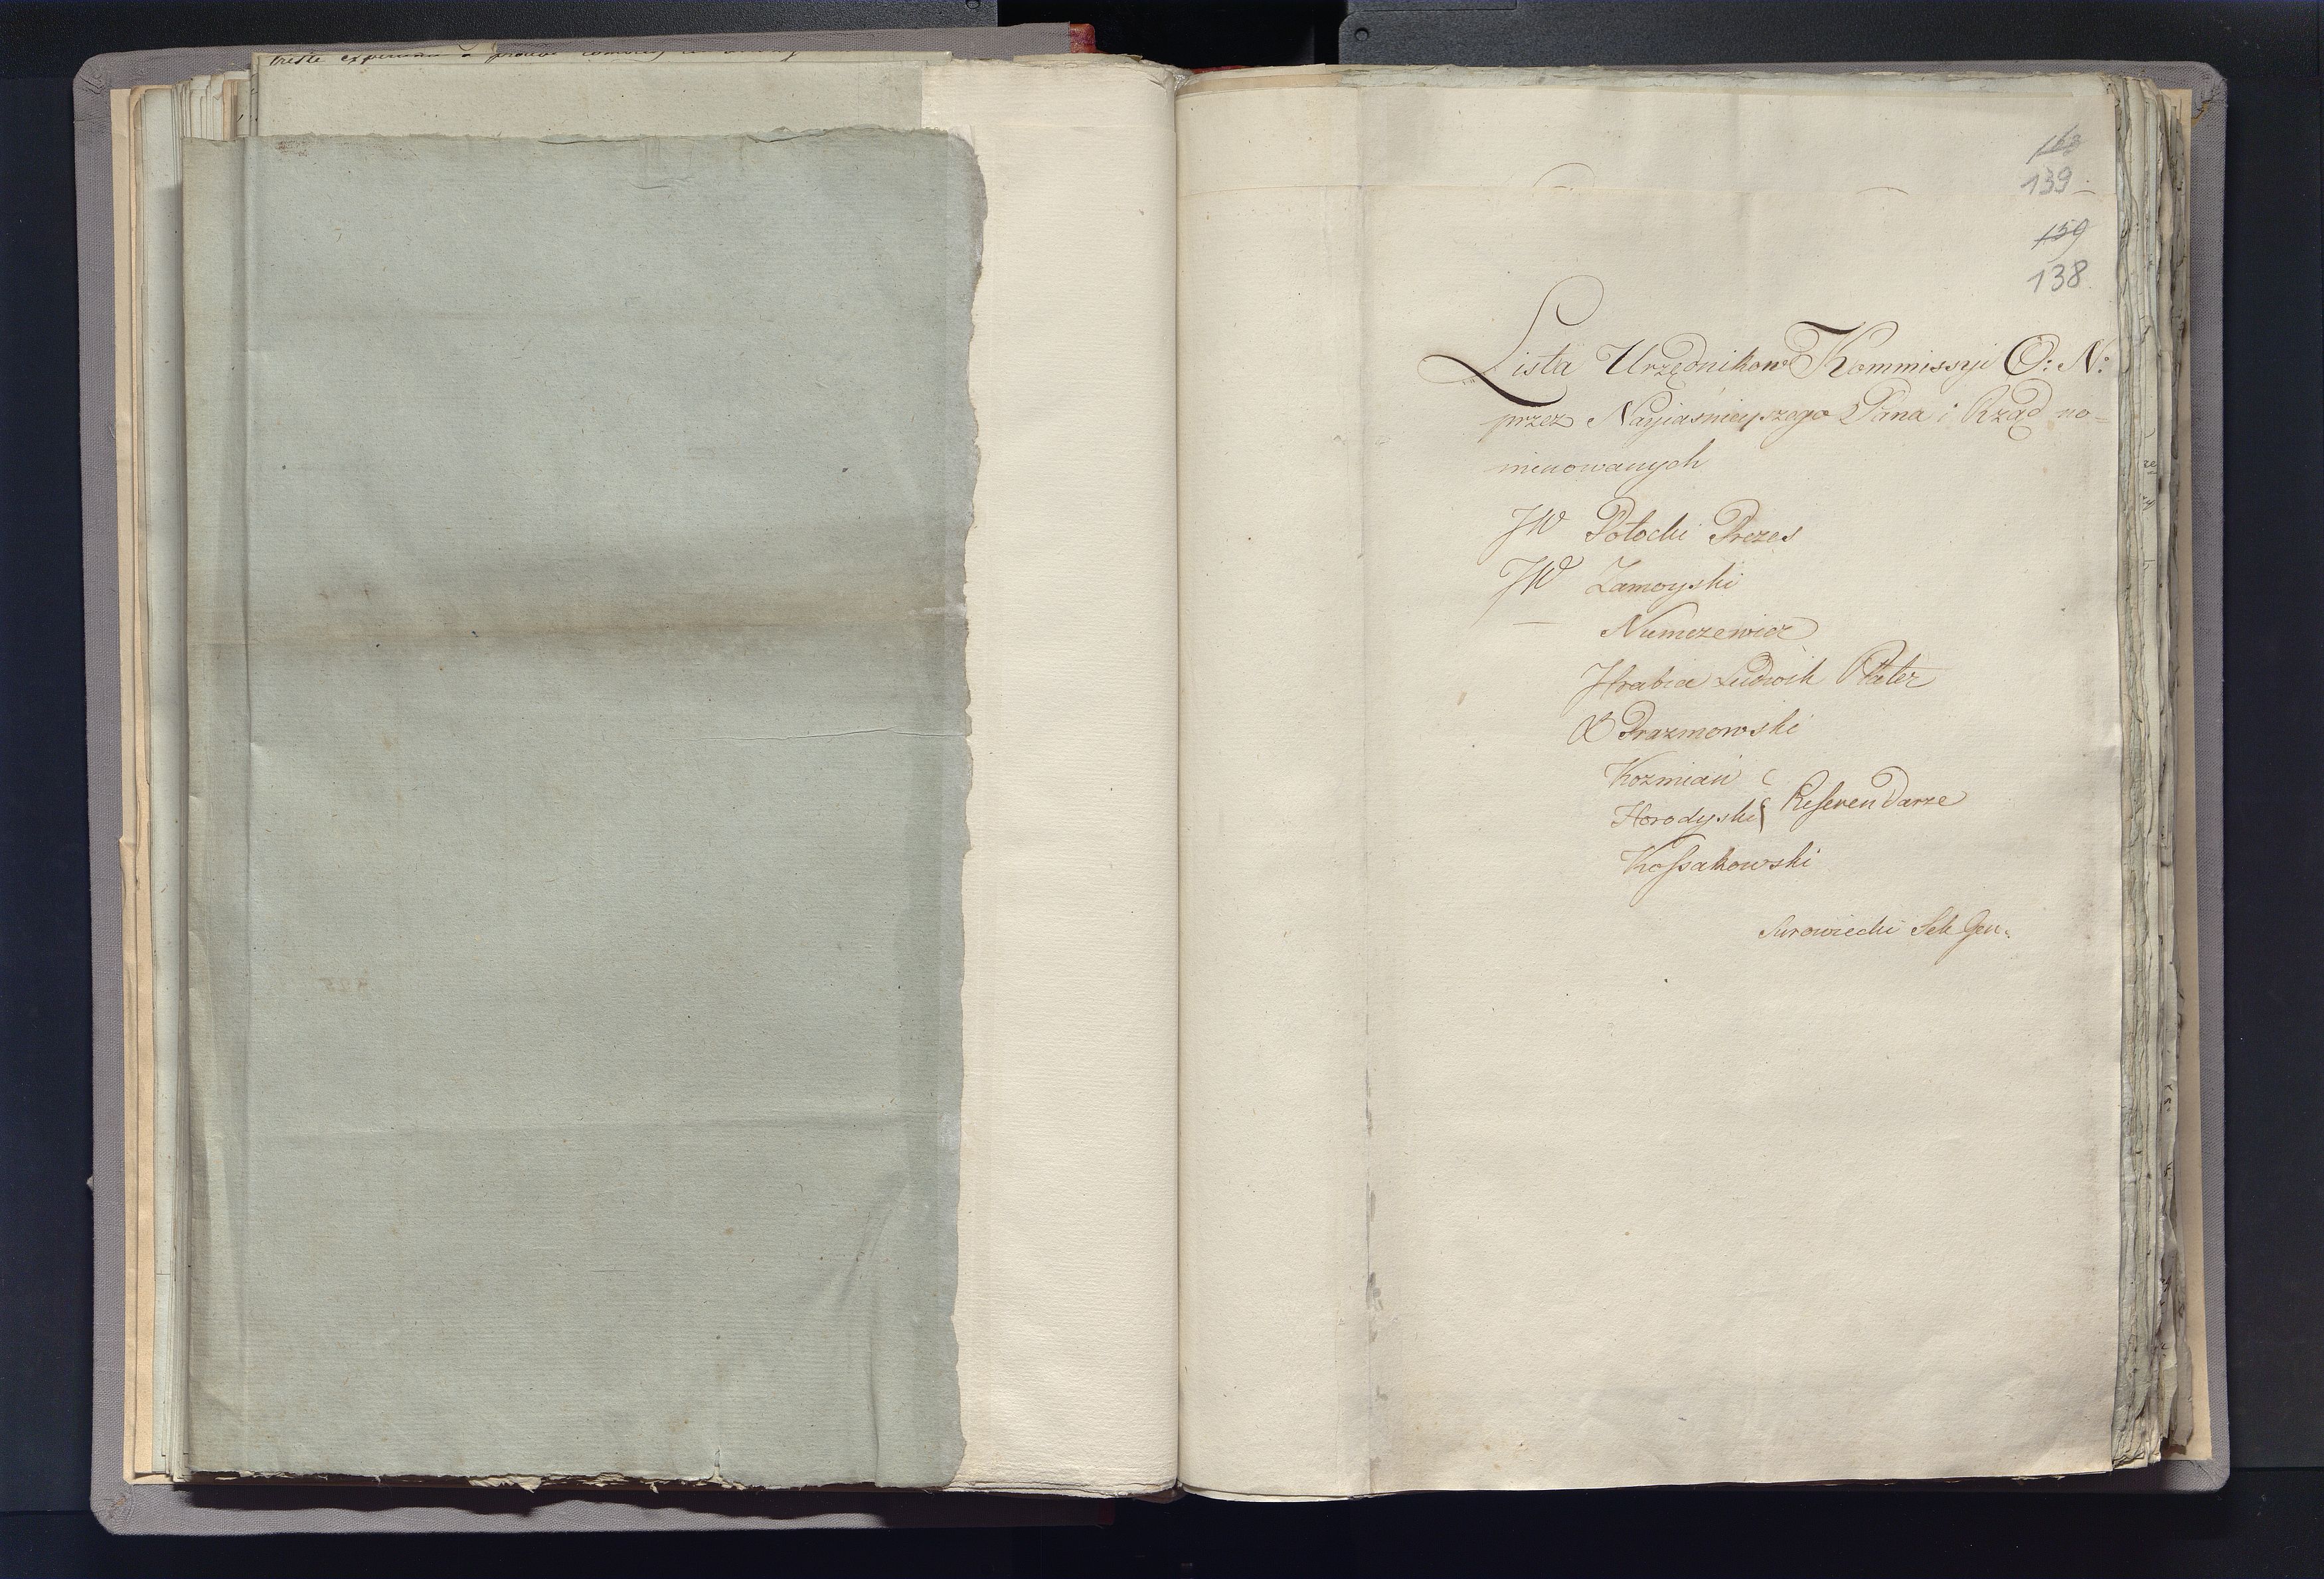 163
139
159
138
Lista Urzędnikow Kommissyi O: N:
przez Nayiaśnieyszego Pana i Rząd no=
minowanych
JW Potocki Prezes
JW Zamoyski
— Niemcewicz
Hrabia Ludwik Plater
X Prazmowski
Kozmian
Horodyski } Referendarze
Kossakowski
Surowiecki Sek Gen: